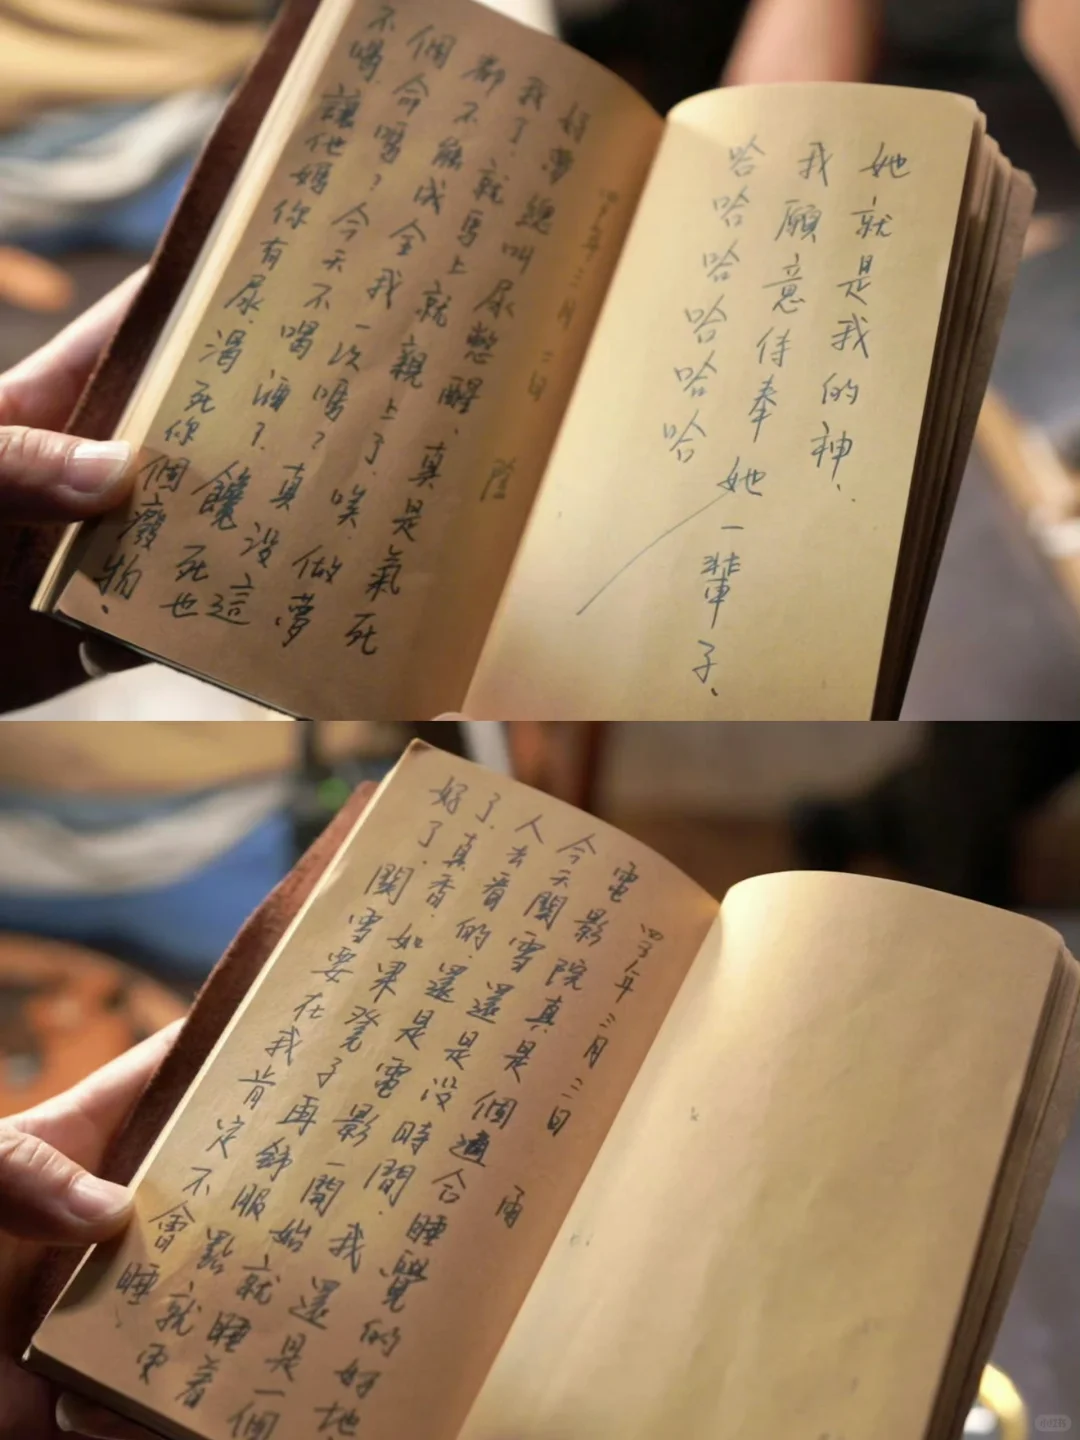 她就是我的神、
我願意侍奉她一輩子、
哈哈哈哈哈哈
年三月二日 陰
好夢總叫尿憋醒、真是氣死
我了、就馬上就親上了、唉、做夢
都不能成全我一次嗎？真沒這
個命嗎？今天不喝酒？饞死也
不喝、讓他媽你有尿、渴死你個廢物、
年三月三日 雨
電影院真是個適合睡覺的好地、
今天關雪還是沒時間、我還是一個
人去看的、還是電影一開始就睡著
了、真香、如果凳子再舒服點就更
好了、關雪要在我肯定不會睡、
小红书